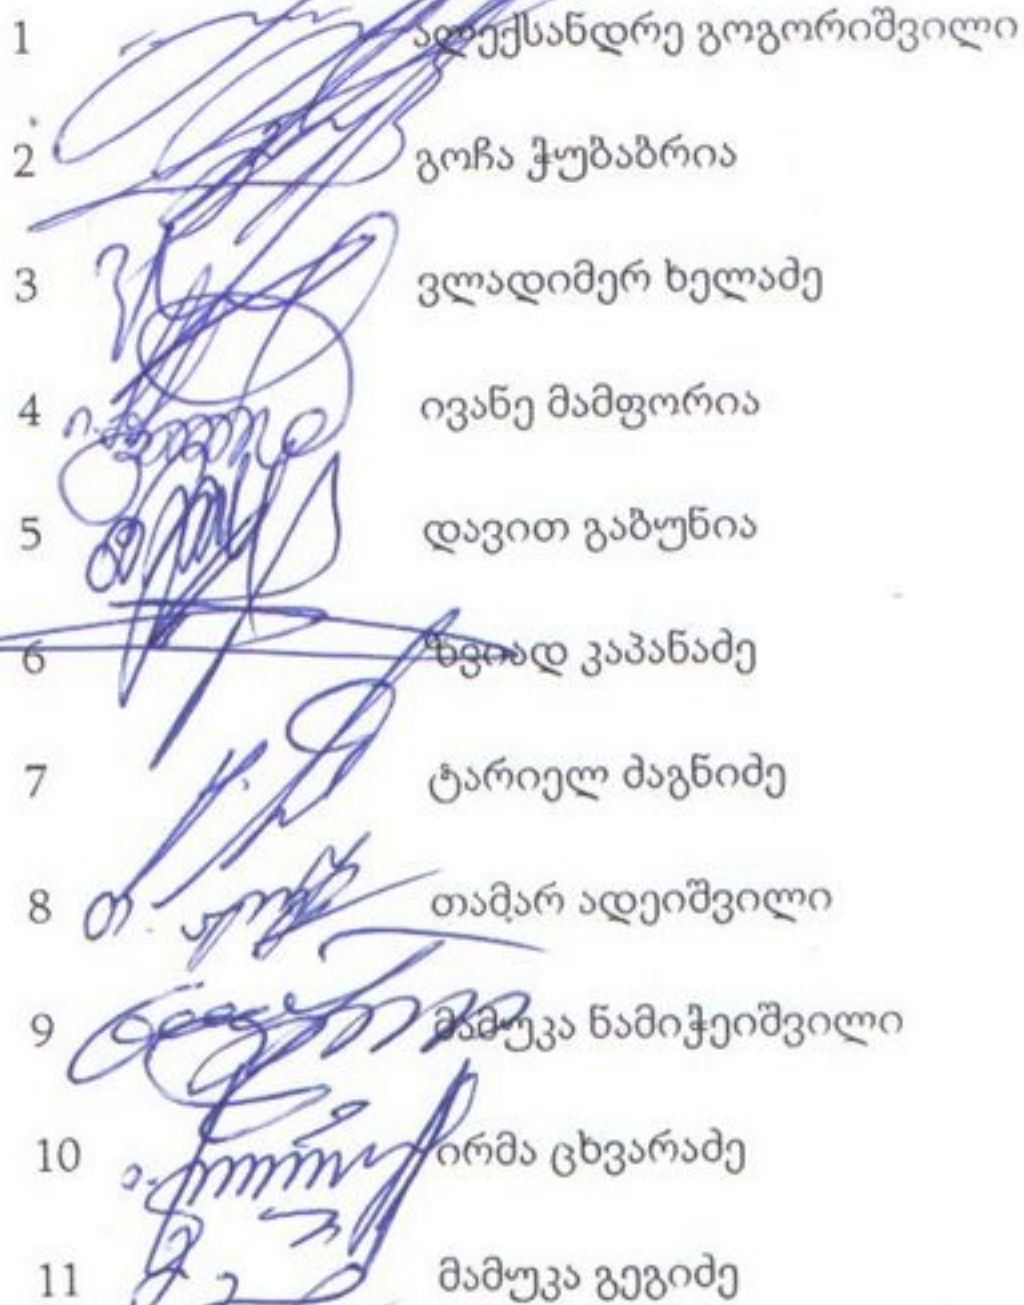 1 ალექსანდრე გოგორიშვილი
2 გოჩა ჭუბაბრია
3 ვლადიმერ ხელაძე
4 ივანე მამფორია
5 დავით გაბუნია
6 ზვიად კაპანაძე
7 ტარიელ ძაგნიძე
8 თამარ ადეიშვილი
9 მამუკა ნამიჭეიშვილი
10 ირმა ცხვარაძე
11 მამუკა გეგიძე